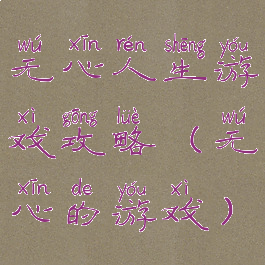 wú xīn rén shēng yóu
无心人生游
xì gōng lüè wú
戏攻略（无
xīn de yóu xì
心的游戏）